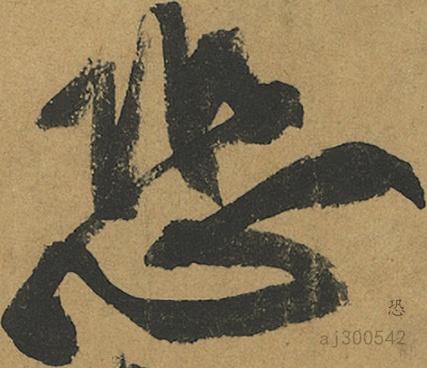 恐
恐
aj300542